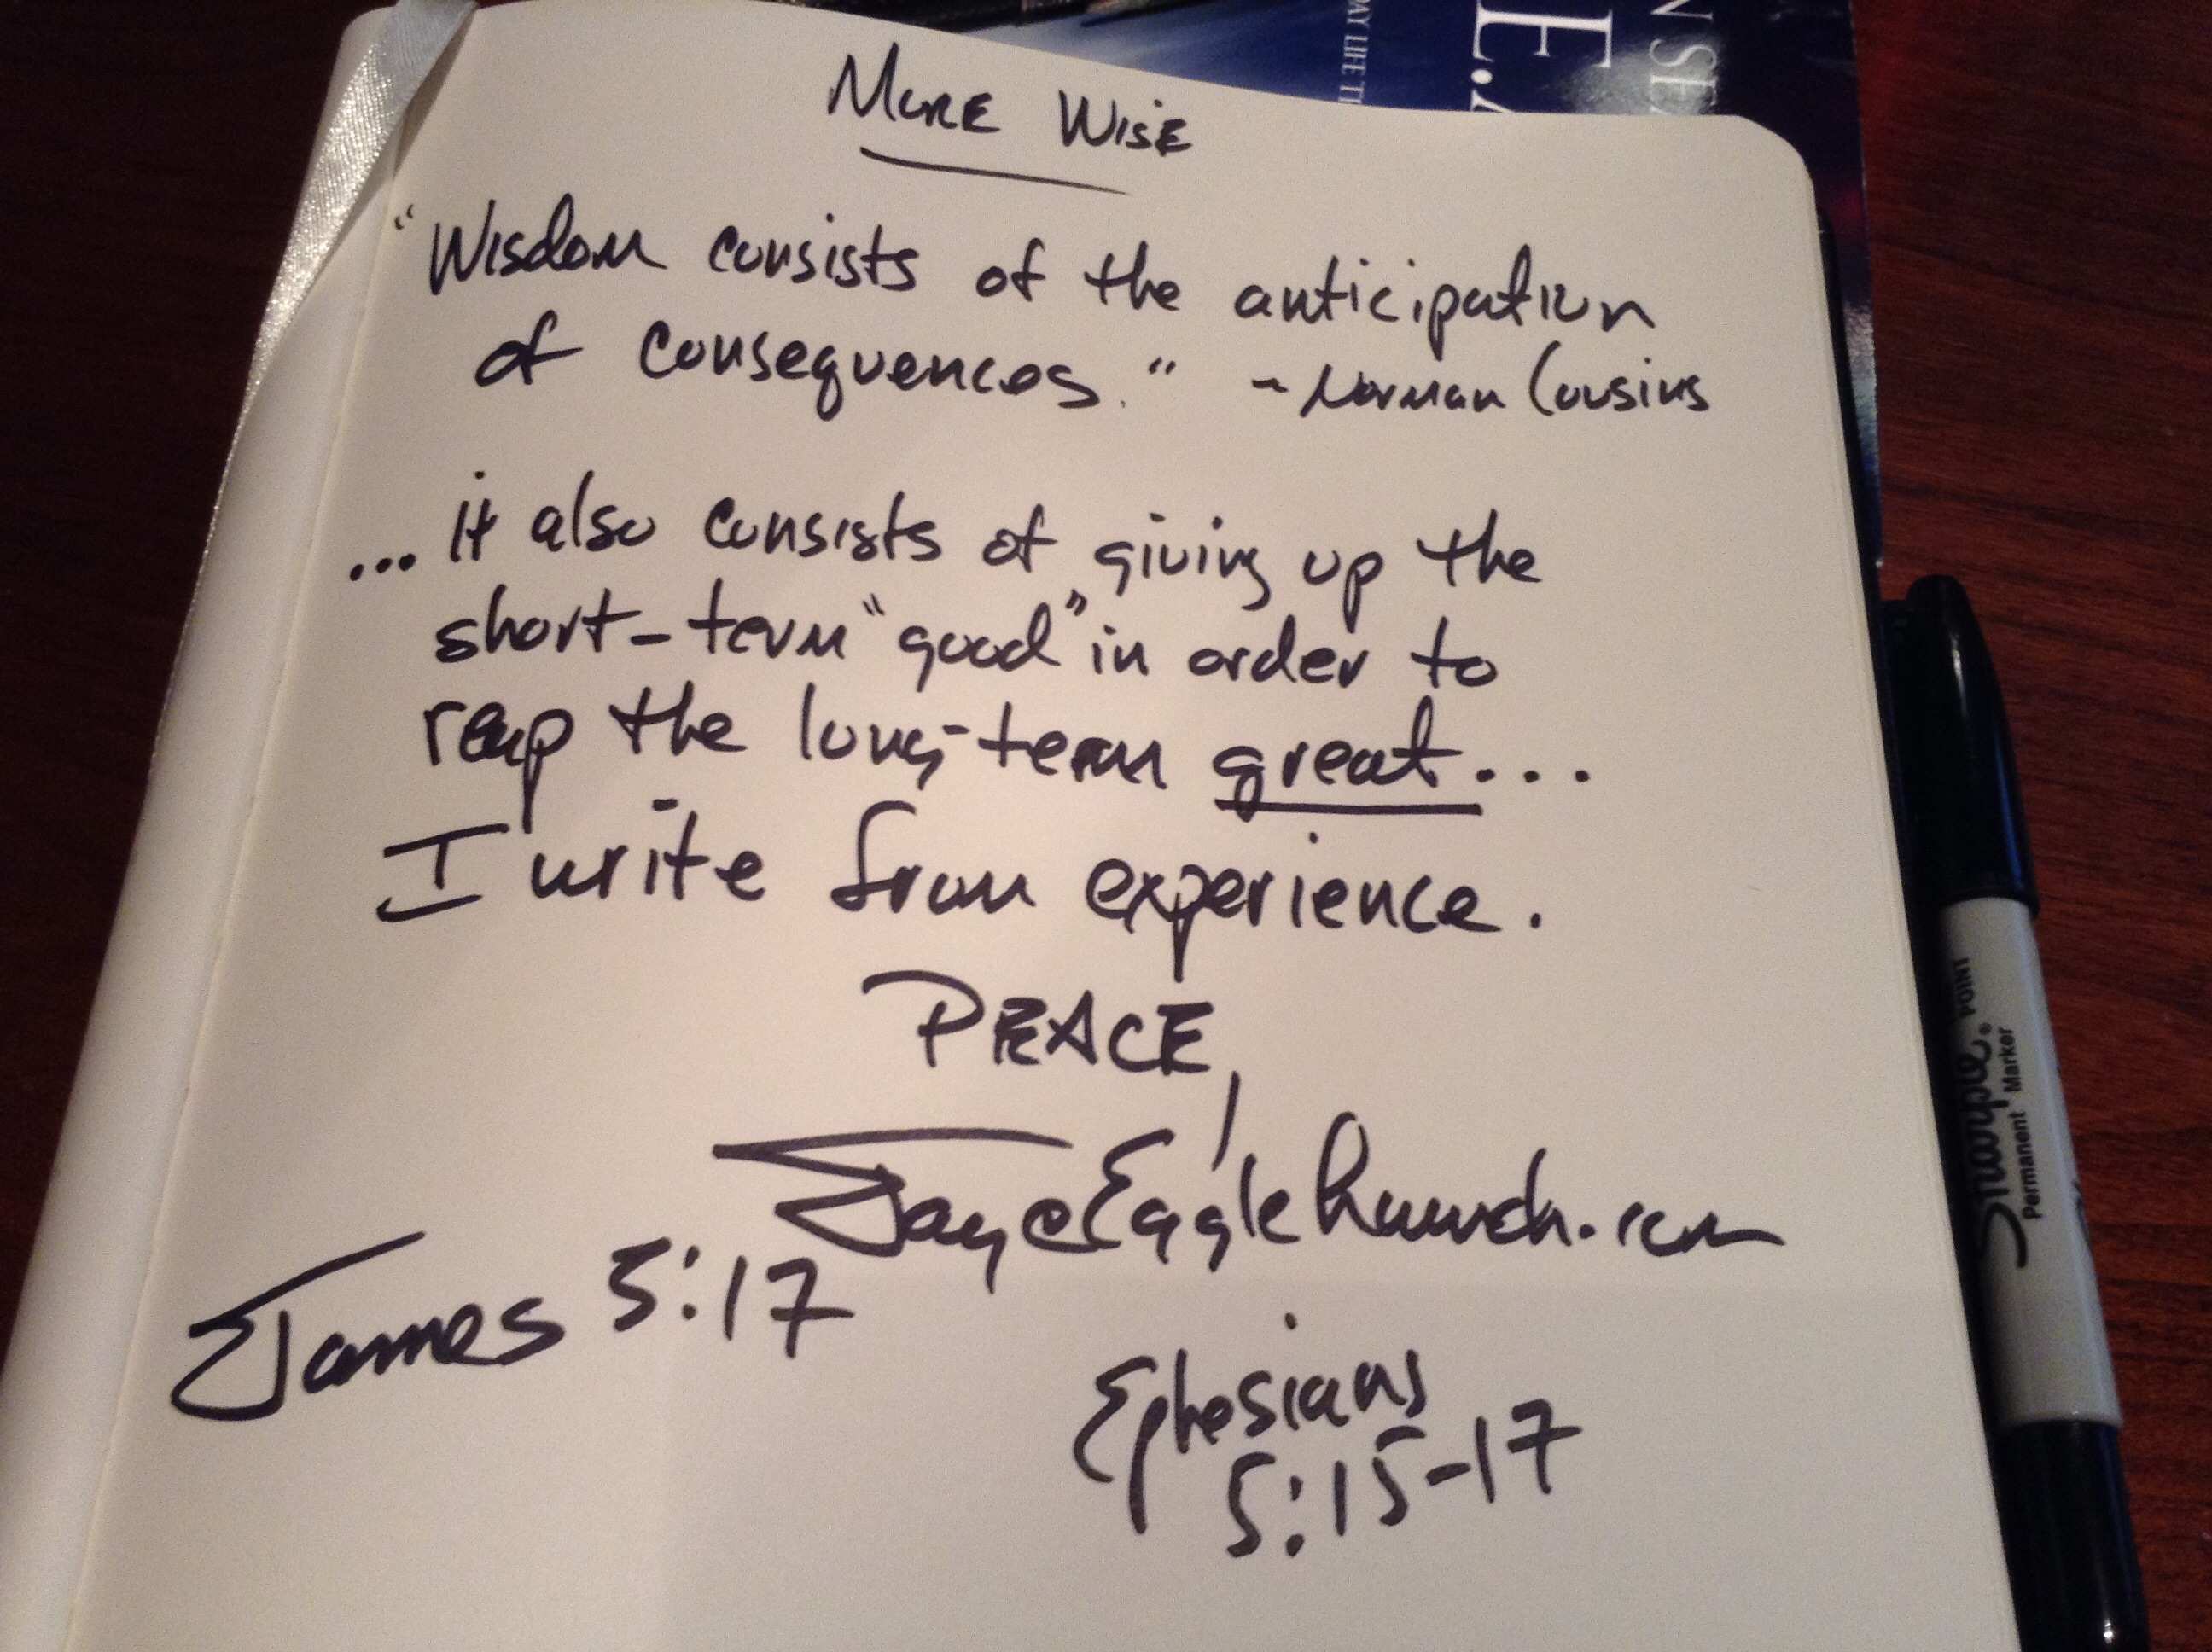 More Wise
"Wisdom consists of the anticipation
of consequences." ~ Norman Cousins
... it also consists of giving up the
short-term "good" in order to
reap the long-term great...
I write from experience.
PEACE,
Jay@EagleLaunch.com
James 5:17
Ephesians
5:15-17
Sharpie®
Permanent Marker
POINT
AY LIFE
E.
N